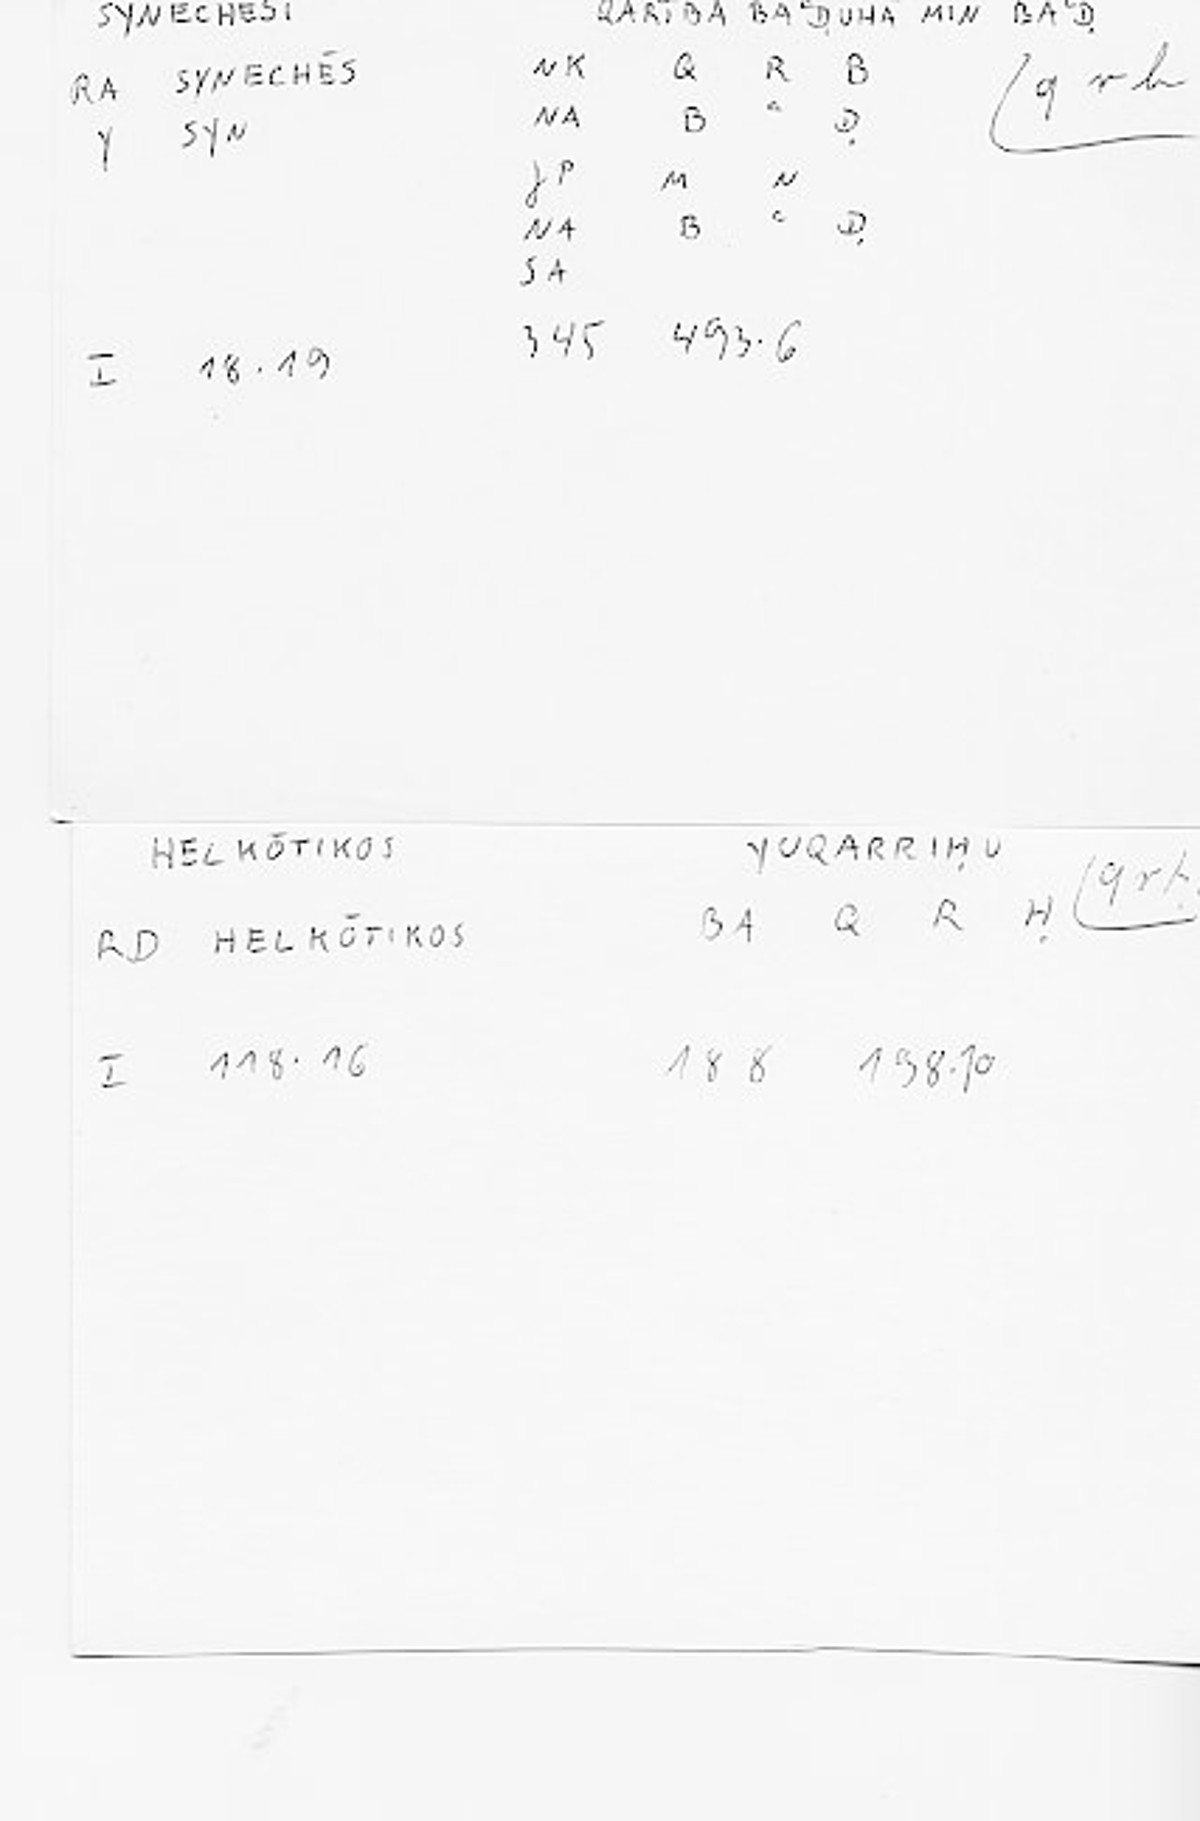 SYNECHESI QARĪBA BAʿḌUHĀ MIN BAʿḌ
RA SYNECHĒS NK Q R B (q r b
Y SYN NA B ʿ Ḍ
JP M N
NA B ʿ Ḍ
SA
I 18.19 345 493.6
HELKŌTIKOS YUQARRIḤU (q r ḥ
RD HELKŌTIKOS BA Q R Ḥ
I 118.16 188 198.10